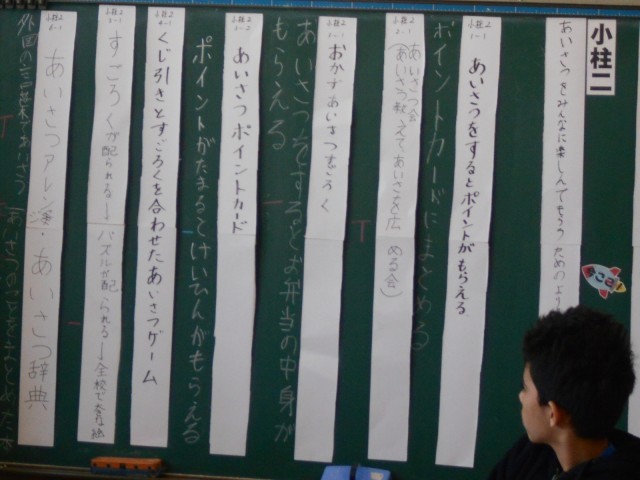 小柱二
あいさつをみんなに楽しんでもらう ための
小柱2
あいさつをするとポイントがもらえる
ポイントカードにまとめる
小柱2
あいさつ会
(あいさつ教えて、あいさつを広める会)
小柱2
おかずあいさつすごろく
あいさつをするとお弁当の中身が
もらえる
小柱2
あいさつポイントカード
ポイントがたまるとけいひんがもらえる
小柱2
くじ引きとすごろくを合わせたあいさつゲーム
小柱2
すごろくが配られる→パズルが配られる→全校で
小柱2
あいさつ辞典
外国の言葉であいさつ